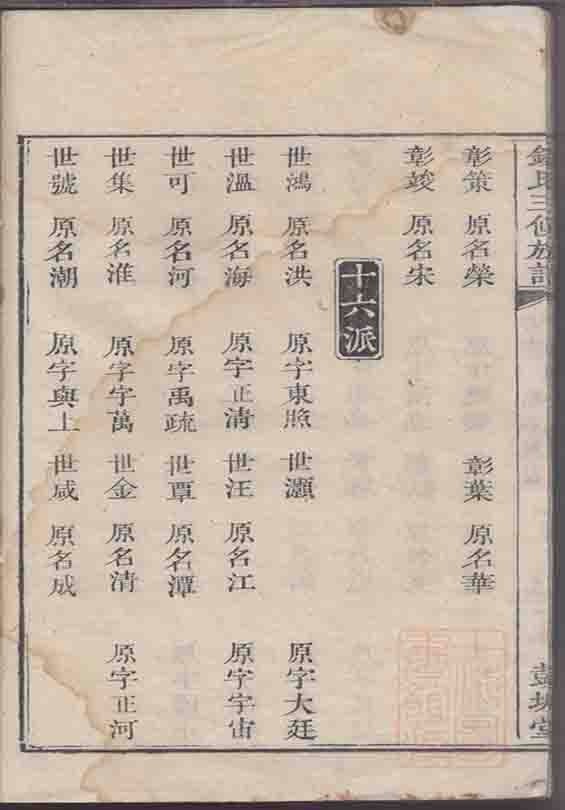 彰策 原名榮 彰葉 原名華
彰竣 原名宋
十六派
世鴻 原名洪 原字東照 世灝 原字大廷
世溫 原名海 原字正清 世汪 原名江 原字宇宙
世可 原名河 原字禹疏 世覃 原名潭
世集 原名淮 原字字萬 世金 原名清 原字正河
世號 原名潮 原字與上 世咸 原名成